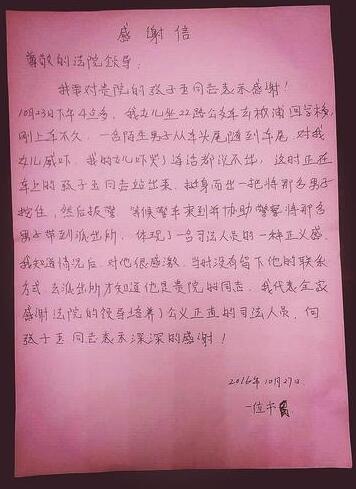 感谢信
尊敬的法院领导:
我要对贵院的张子玉同志表示感谢!
10月23日下午4点多,我女儿坐22路公交车去 浦回学校,
刚上车不久,一名陌生男子从车头尾随到车尾,对我
女儿威吓,我的女儿吓哭了连话都说不出,这时正在
车上的张子玉同志站出来,挺身而出一把将那名男子
控住,然后报警,等候警车来到并协助警察将那名
男子带到派出所,体现了一名司法人员的一种正义感.
我知道情况后,对他很感激,当时没有留下他的联系
方式,去派出所才知道他是贵院的同志,我代表全家
感谢法院的领导培养了公义正直的司法人员,向
张子玉同志表示深深的感谢!
2016年10月27日
一位市